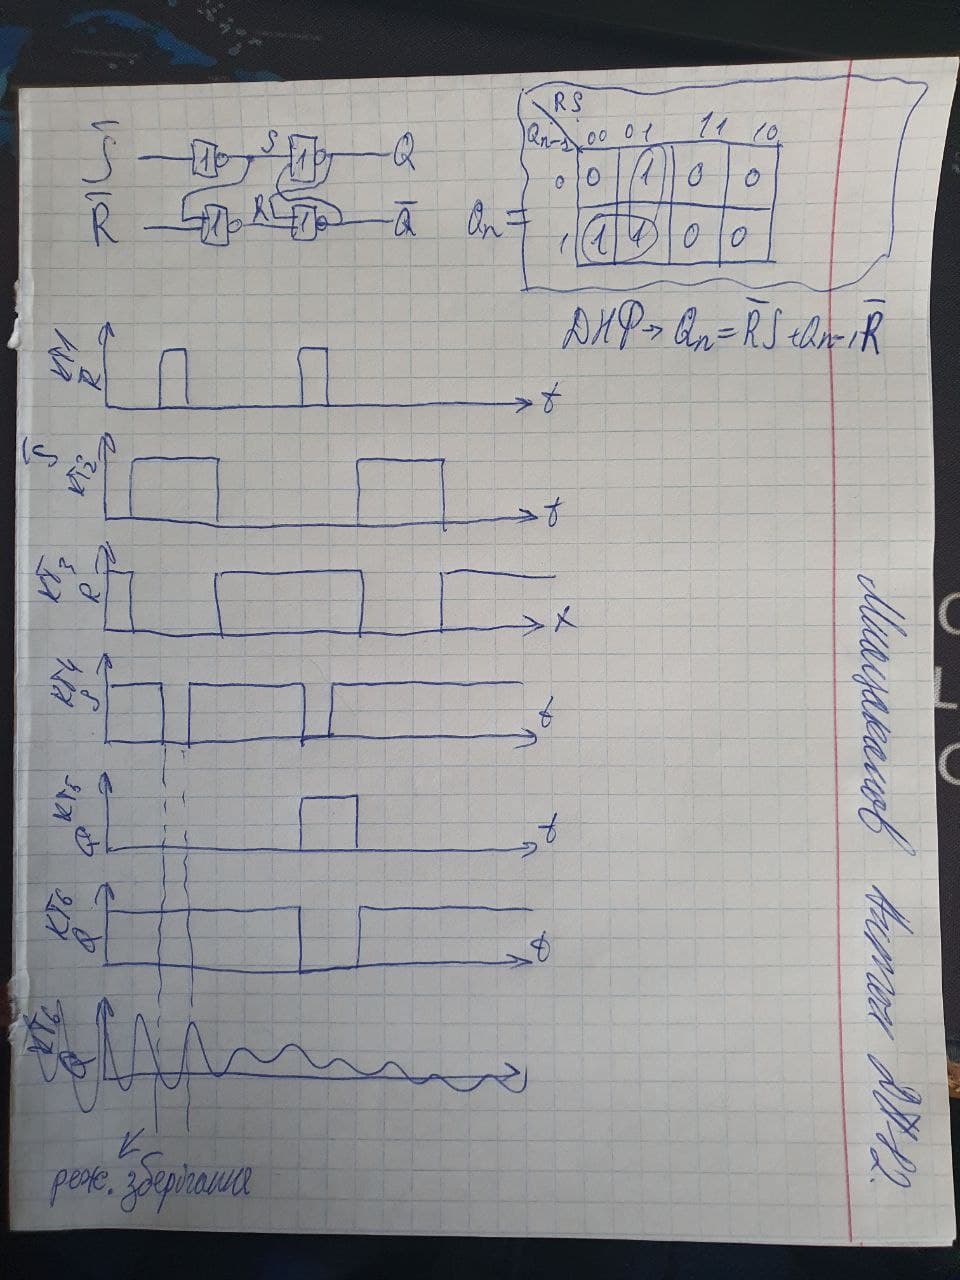 S̅ 1 S 1 Q
R̅ 1 R 1 Q̅
RS
Qn-1 00 01 11 10
0 0 1 0 0
Qn =
1 1 1 0 0
ДНФ → Qn = R̅S + Qn-1R̅
КТ1
R̅
t
S̅
КТ2
t
КТ3
R
t
КТ4
S
t
КТ5
Q
t
КТ6
Q
t
КТ6
Q
реж. зберігання